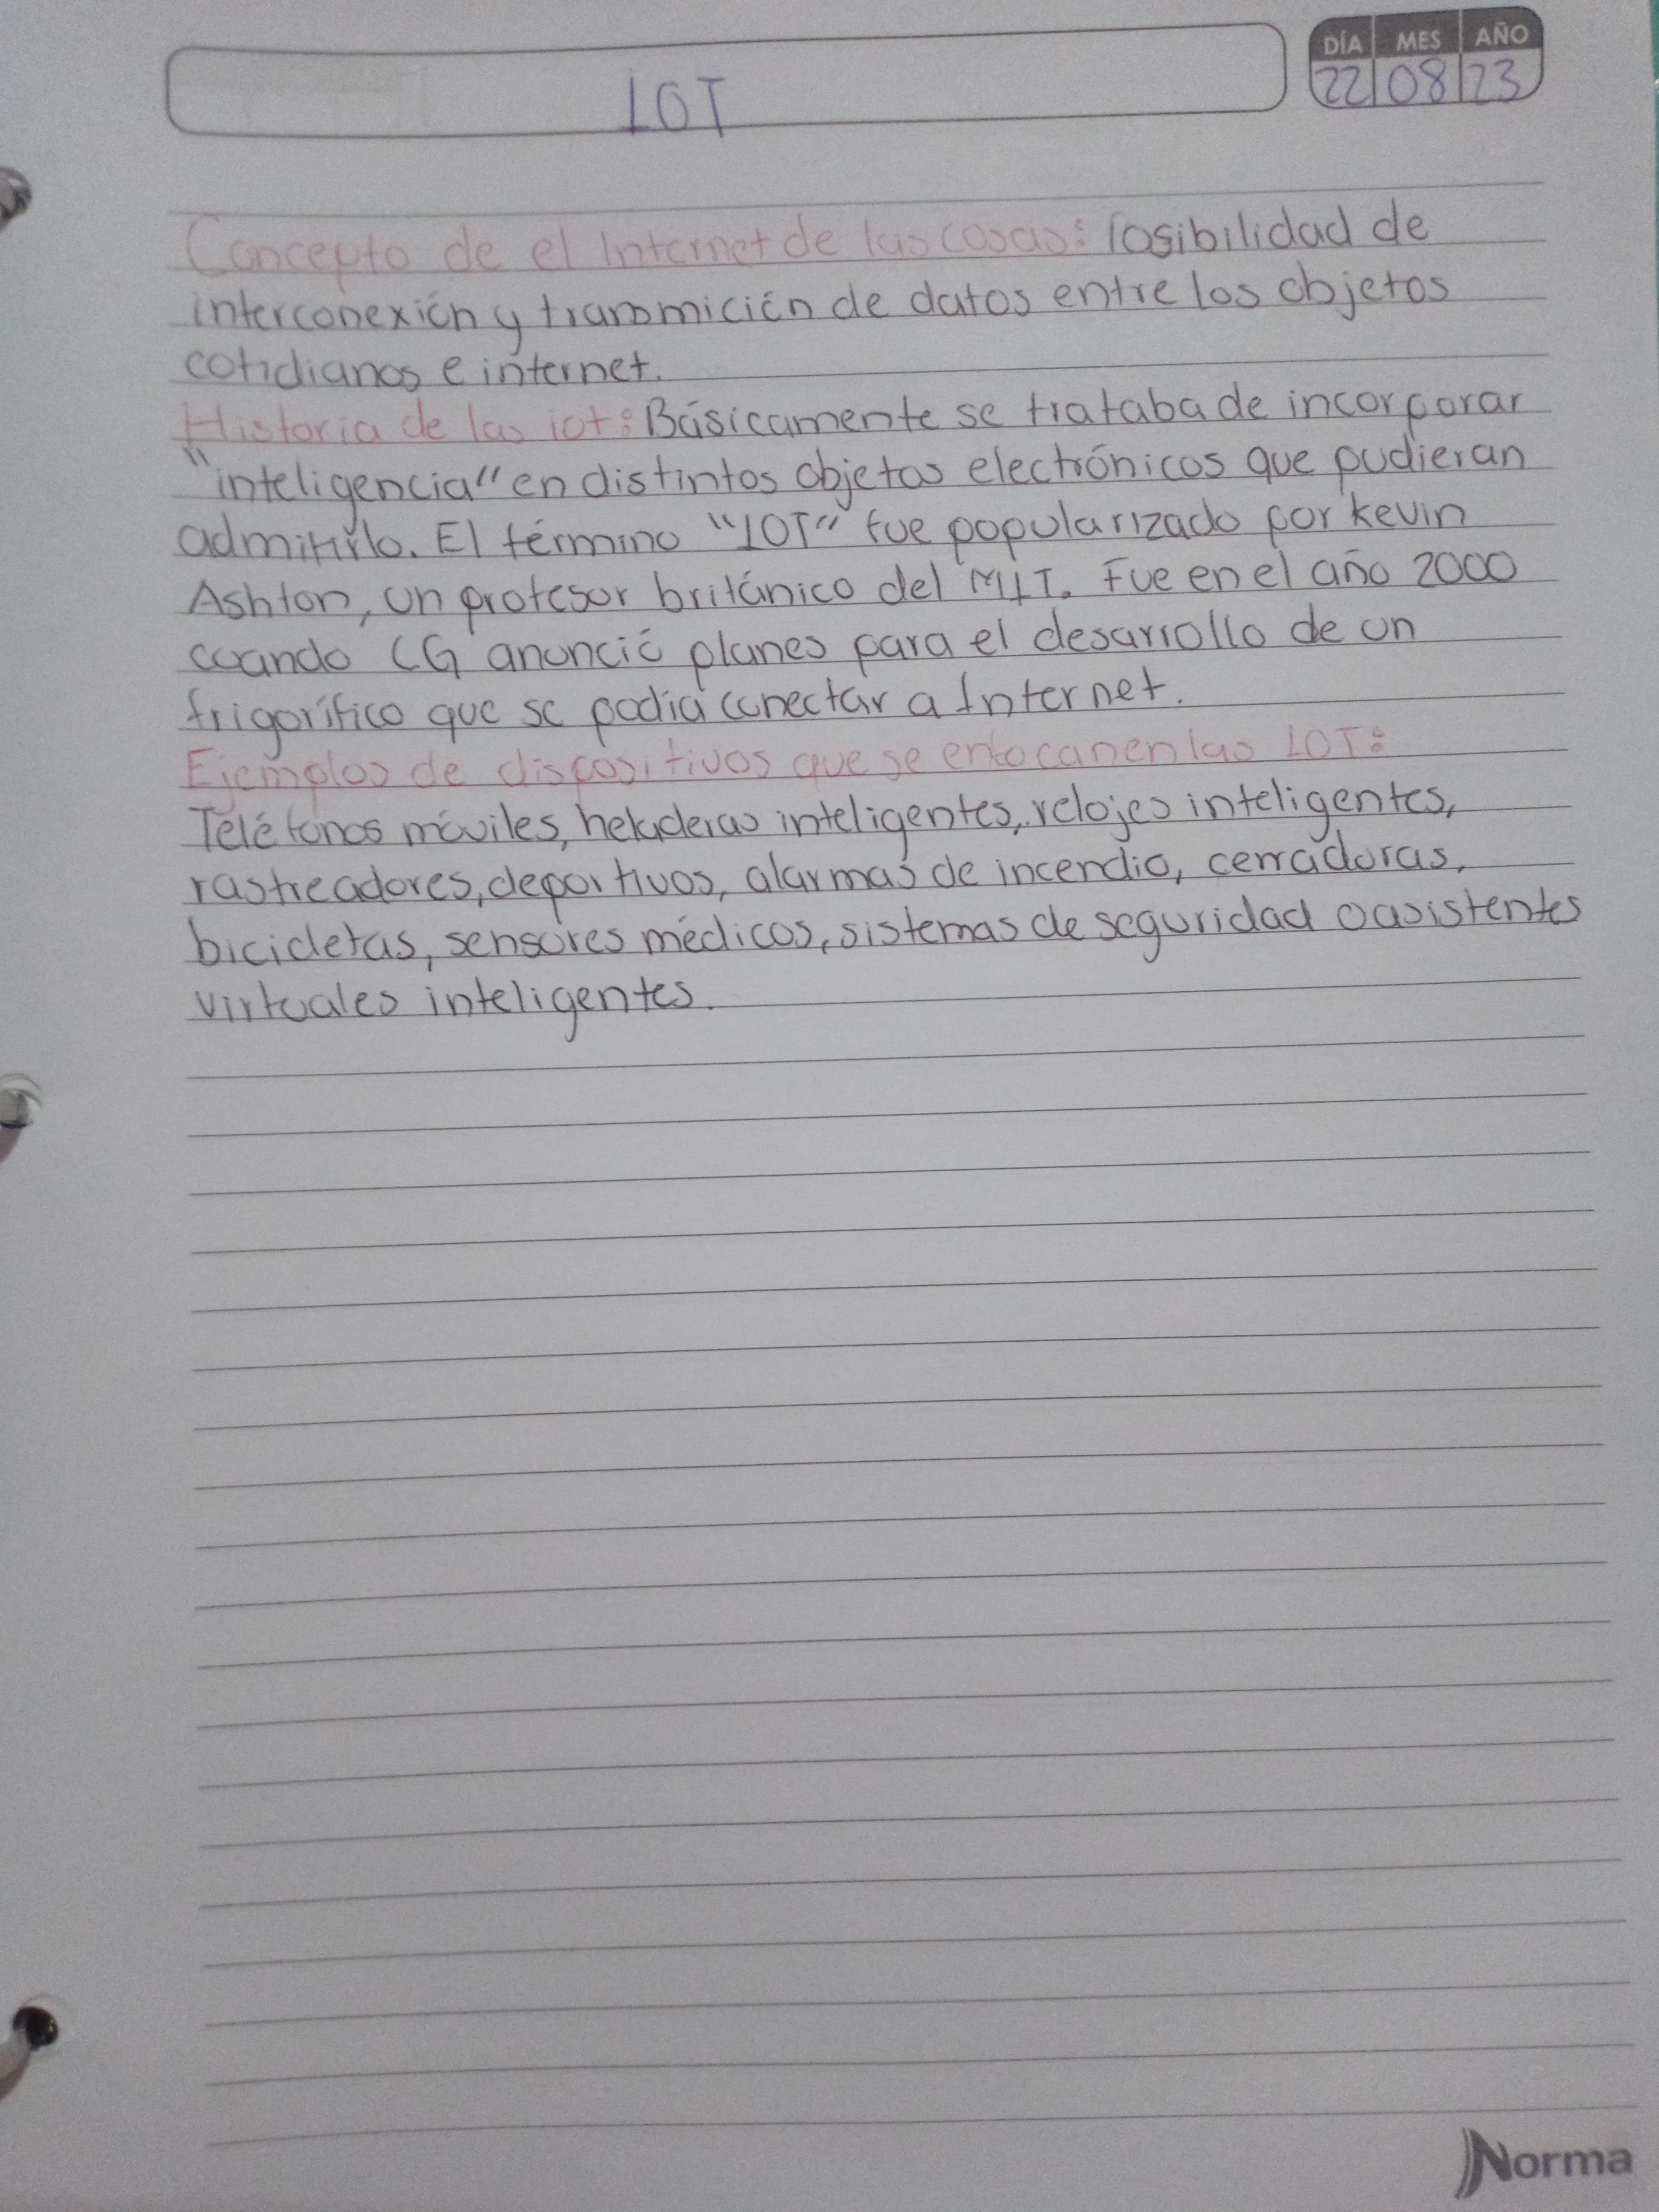 DÍA MES AÑO
IOT 22 08 23
Concepto de el Internet de las cosas: Posibilidad de
interconexión y transmición de datos entre los objetos
cotidianos e internet.
Historia de las iot: Básicamente se trataba de incorporar
"inteligencia" en distintos objetos electrónicos que pudieran
admitirlo. El término "IOT" fue popularizado por Kevin
Ashton, un profesor británico del MIT. Fue en el año 2000
cuando LG anunció planes para el desarrollo de un
frigorífico que se podía conectar a Internet.
Ejemplos de dispositivos que se enfocan en las IOT:
Teléfonos móviles, heladeras inteligentes, relojes inteligentes,
rastreadores, deportivos, alarmas de incendio, cerradoras,
bicicletas, sensores médicos, sistemas de seguridad o asistentes
virtuales inteligentes.
Norma